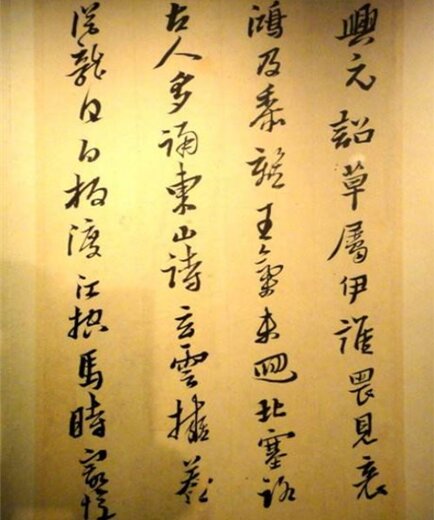 興元詔草屬伊誰畏見哀
鴻及黍離王氣未迴北塞路
古人多誦東山詩雲
從龍日白板渡江馬時憶